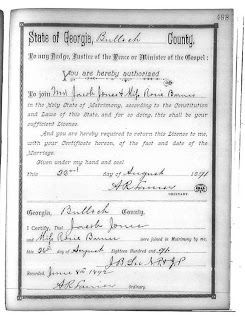 State of Georgia, Bulloch County.
To any Judge, Justice of the Peace or Minister of the Gospel:
You are hereby authorized
To join Mr Jacob Jones & Miss Roxie
in the Holy State of Matrimony, according to the Constitution
and Laws of this State, and for so doing, this shall be your
sufficient License.
And you are hereby required to return this License to me,
with your Certificate hereon, of the fact and date of the
Marriage.
Given under my hand and seal
this 22nd day of August 1891
A R Lanier
ORDINARY.
Georgia, Bulloch County.
I Certify, That Jacob Jones
and Miss were joined in Matrimony by me,
this day of August Eighteen Hundred and 91
J. B. Lee N.P. & J.P.
Recorded, June 1892
A R Lanier Ordinary.